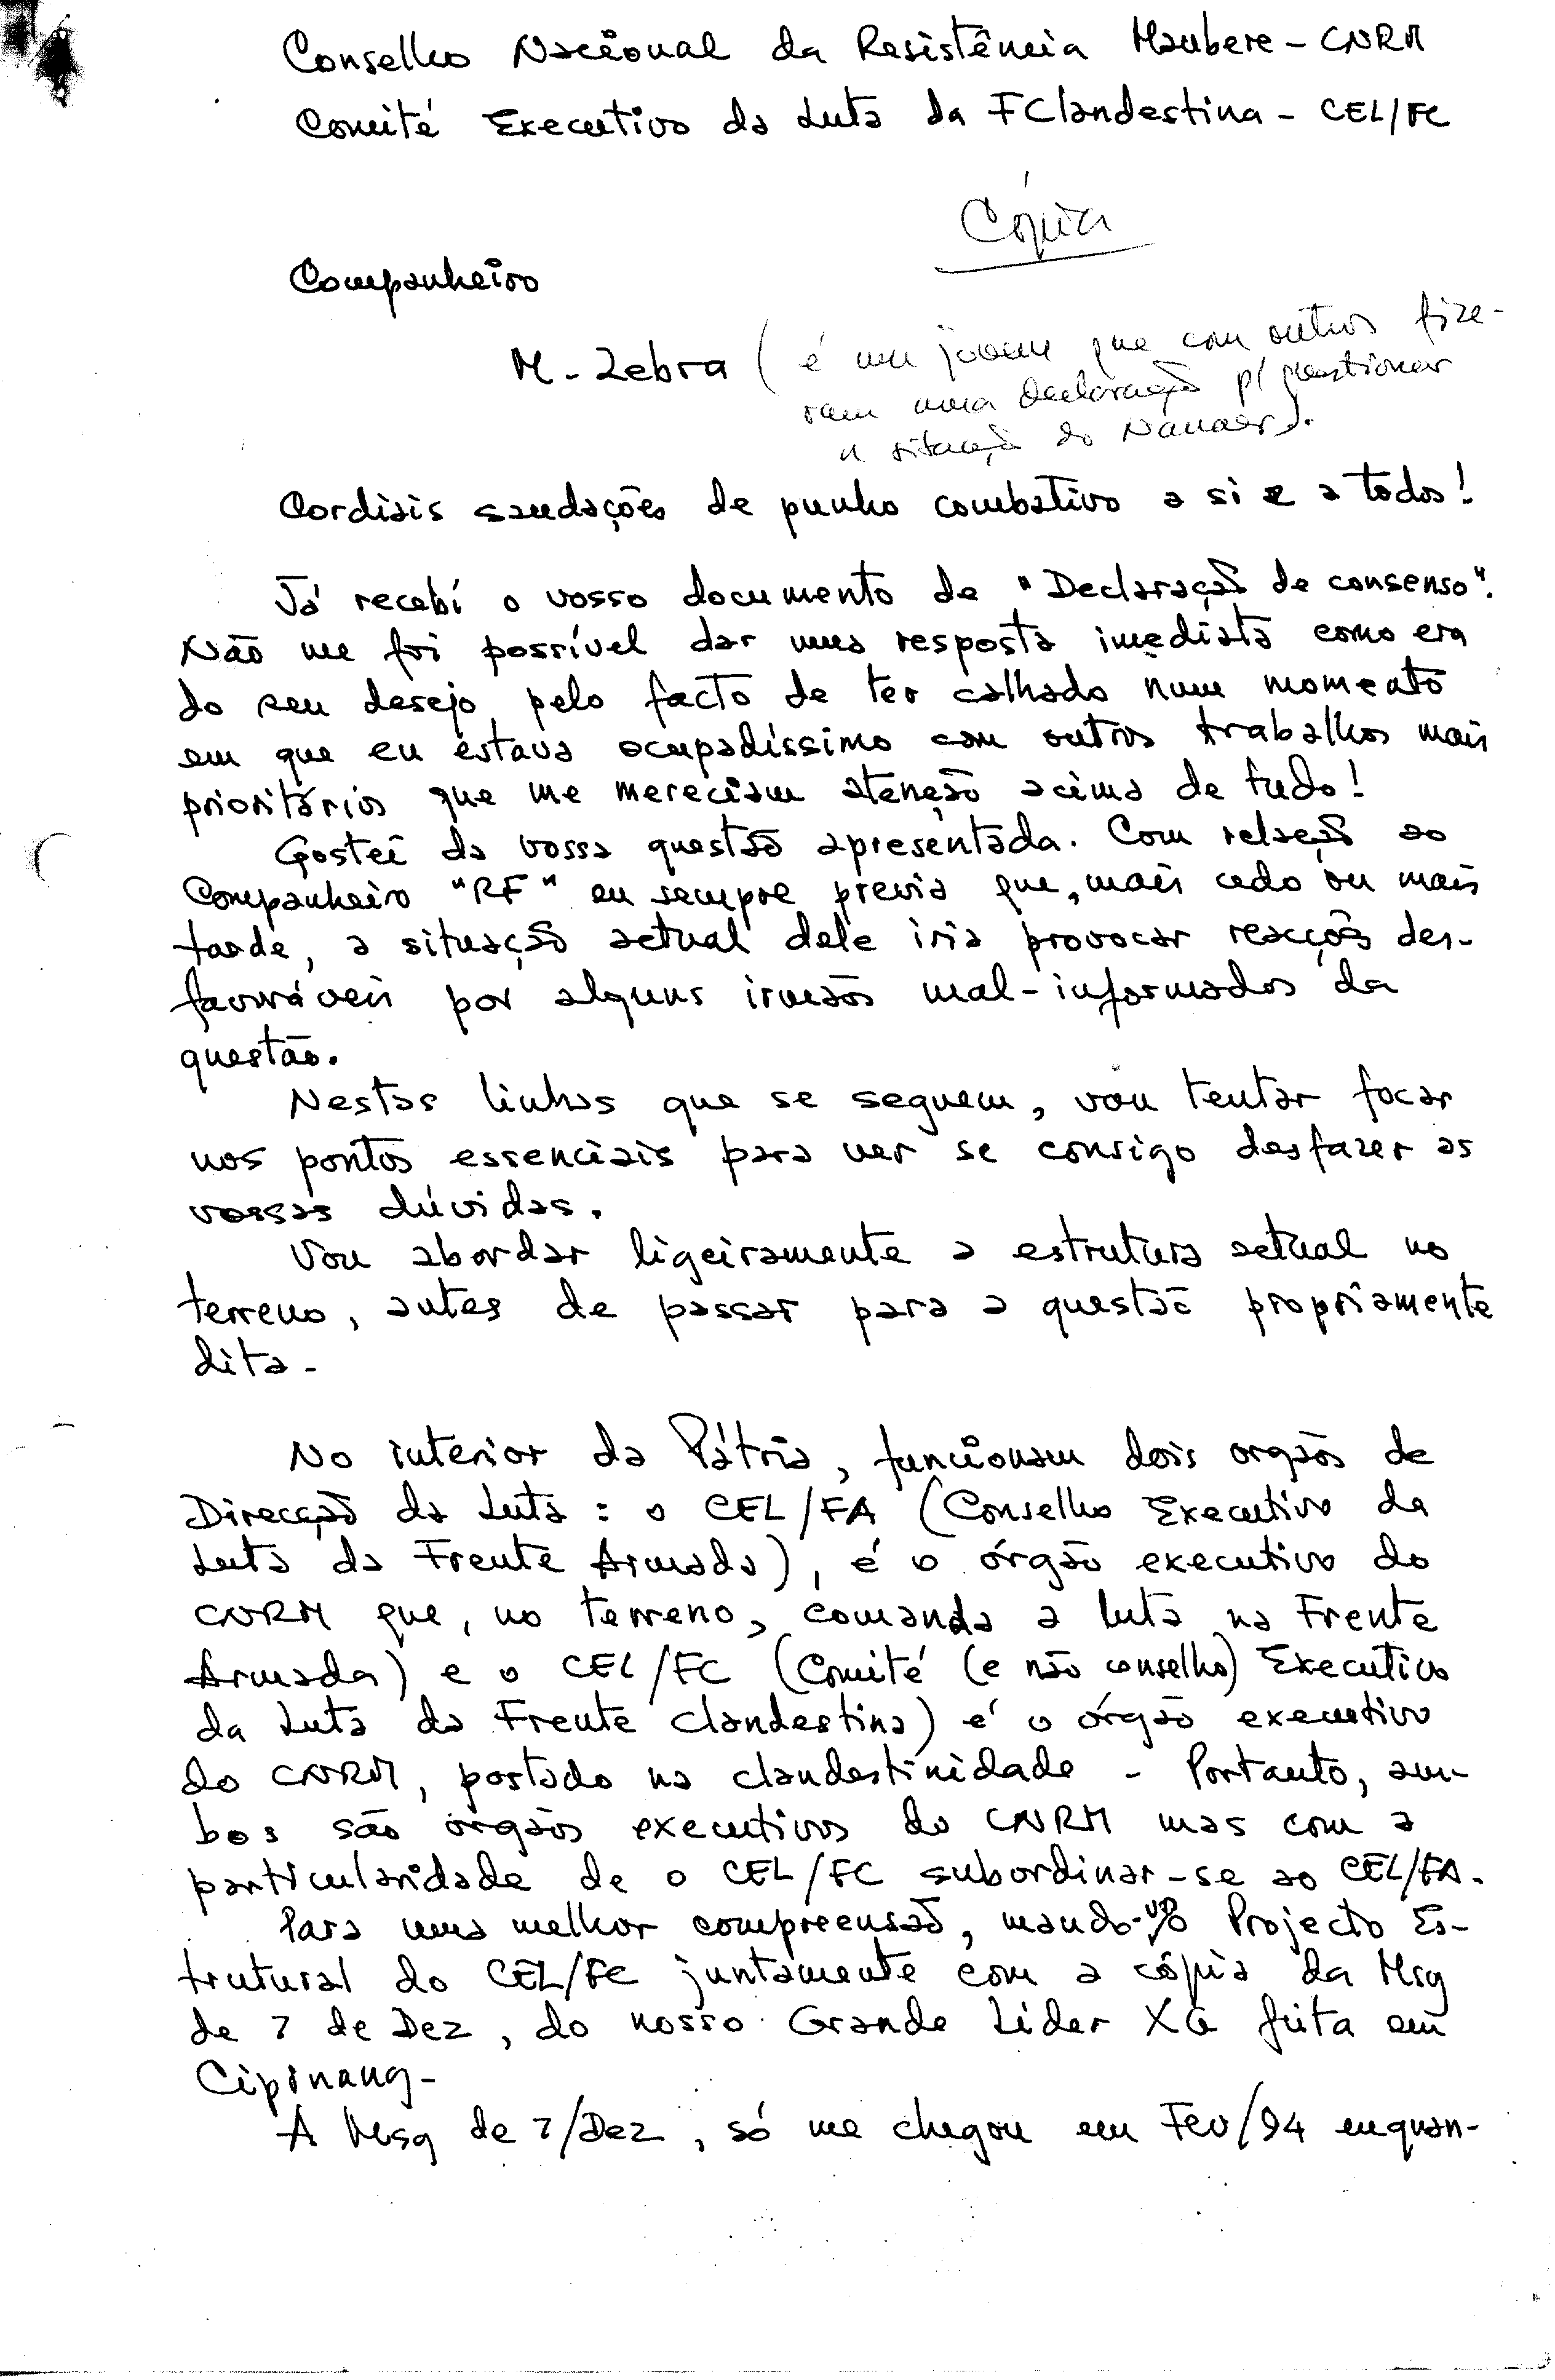 Conselho Nacional da Resistência Maubere - CNRM
Comité Executivo da Luta da FClandestina - CEL/FC
Cópia
Companheiro
M. Zebra (é um jovem que com outros fize-
ram uma declaração p/ questionar
a situação do Nanaer).
Cordiais saudações de punho combativo a si e a todos!
Já recebi o vosso documento de "Declaração de consenso".
Não me foi possível dar uma resposta imediata como era
do seu desejo, pelo facto de ter calhado num momento
em que eu estava ocupadíssimo com outros trabalhos mais
prioritários que me mereciam atenção acima de tudo!
Gostei da vossa questão apresentada. Com relação ao
Companheiro "RF" eu sempre previa que, mais cedo ou mais
tarde, a situação actual dele iria provocar reacções des-
favoráveis por alguns irmãos mal-informados da
questão.
Nestas linhas que se seguem, vou tentar focar
nos pontos essenciais para ver se consigo desfazer as
vossas dúvidas.
Vou abordar ligeiramente a estrutura actual no
terreno, antes de passar para a questão propriamente
dita -
No interior da Pátria, funcionam dois orgãos de
Direcção da Luta : o CEL/FA (Conselho Executivo da
Luta da Frente Armada), é o órgão executivo do
CNRM que, no terreno, comanda a luta na Frente
Armada) e o CEL/FC (Comité (e não conselho) Executivo
da Luta da Frente Clandestina) é o órgão executivo
do CNRM, postado na clandestinidade - Portanto, am-
bos são órgãos executivos do CNRM mas com a
particularidade de o CEL/FC subordinar-se ao CEL/FA.
Para uma melhor compreensão, mando-vos o Projecto Es-
trutural do CEL/FC juntamente com a cópia da Msg
de 7 de Dez, do nosso Grande Líder XG feita em
Cipinang -
A Msg de 7/Dez, só me chegou em Fev/94 enquan-